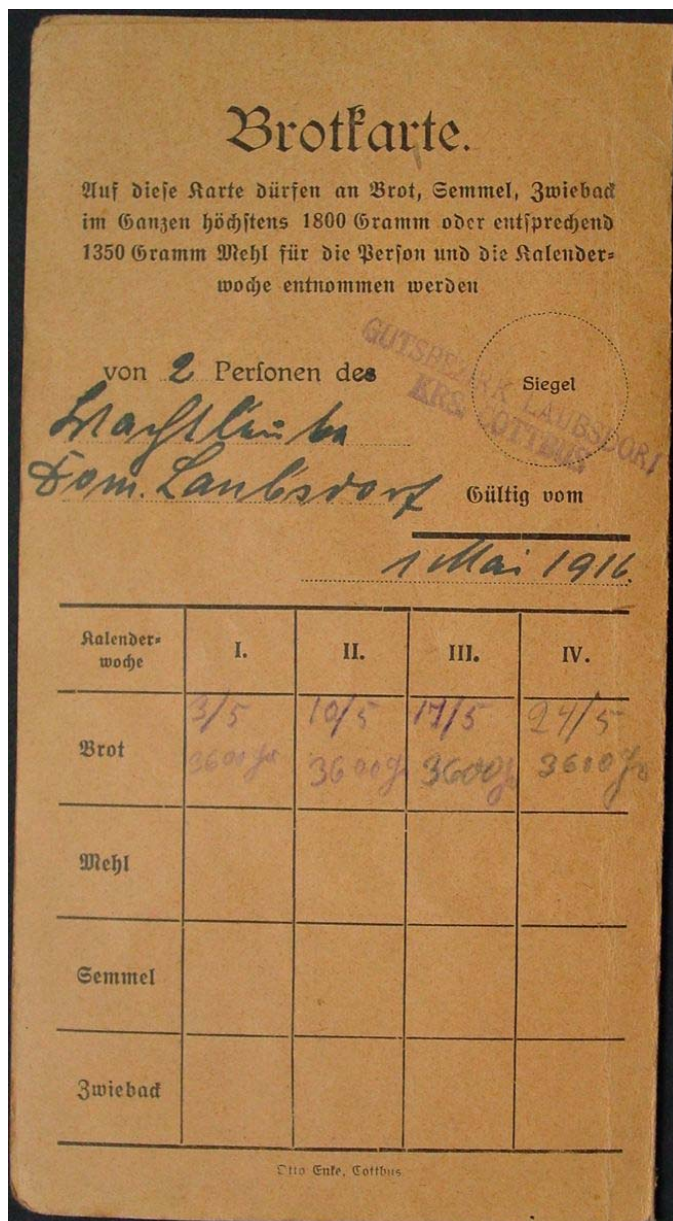 Brotkarte.
Auf diese Karte dürfen an Brot, Semmel, Zwieback
im Ganzen höchstens 1800 Gramm oder entsprechend
1350 Gramm Mehl für die Person und die Kalender=
woche entnommen werden
GUTSBEZIRK LAUBSDORF
KRS. COTTBUS
Siegel
von 2 Personen des
Dom. Laubsdorf Gültig vom
1 Mai 1916.
Kalender= woche I. II. III. IV.
Brot 3/5 10/5 17/5 24/5
3600 3600 3600 3600
Mehl
Semmel
Zwieback
Otto Enke, Cottbus